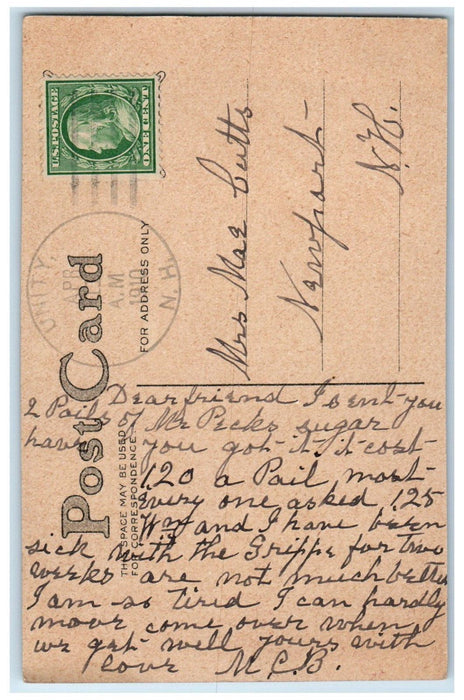 U.S. POSTAGE
ONE CENT
UNITY,
APR
A.M
1910
N.H.
Post Card
FOR ADDRESS ONLY
THIS SPACE MAY BE USED
FOR CORRESPONDENCE
Mrs Mae Cutts
Newport
N.H.
Dear friend I sent you
2 Pails of Mr Pecks sugar
have you got it it cost
1.20 a Pail most
every one asked 1.25
Wm and I have been
sick with the Grippe for two
weeks are not much better
I am so tired I can hardly
move come over when
we get well yours with
love M.C.B.